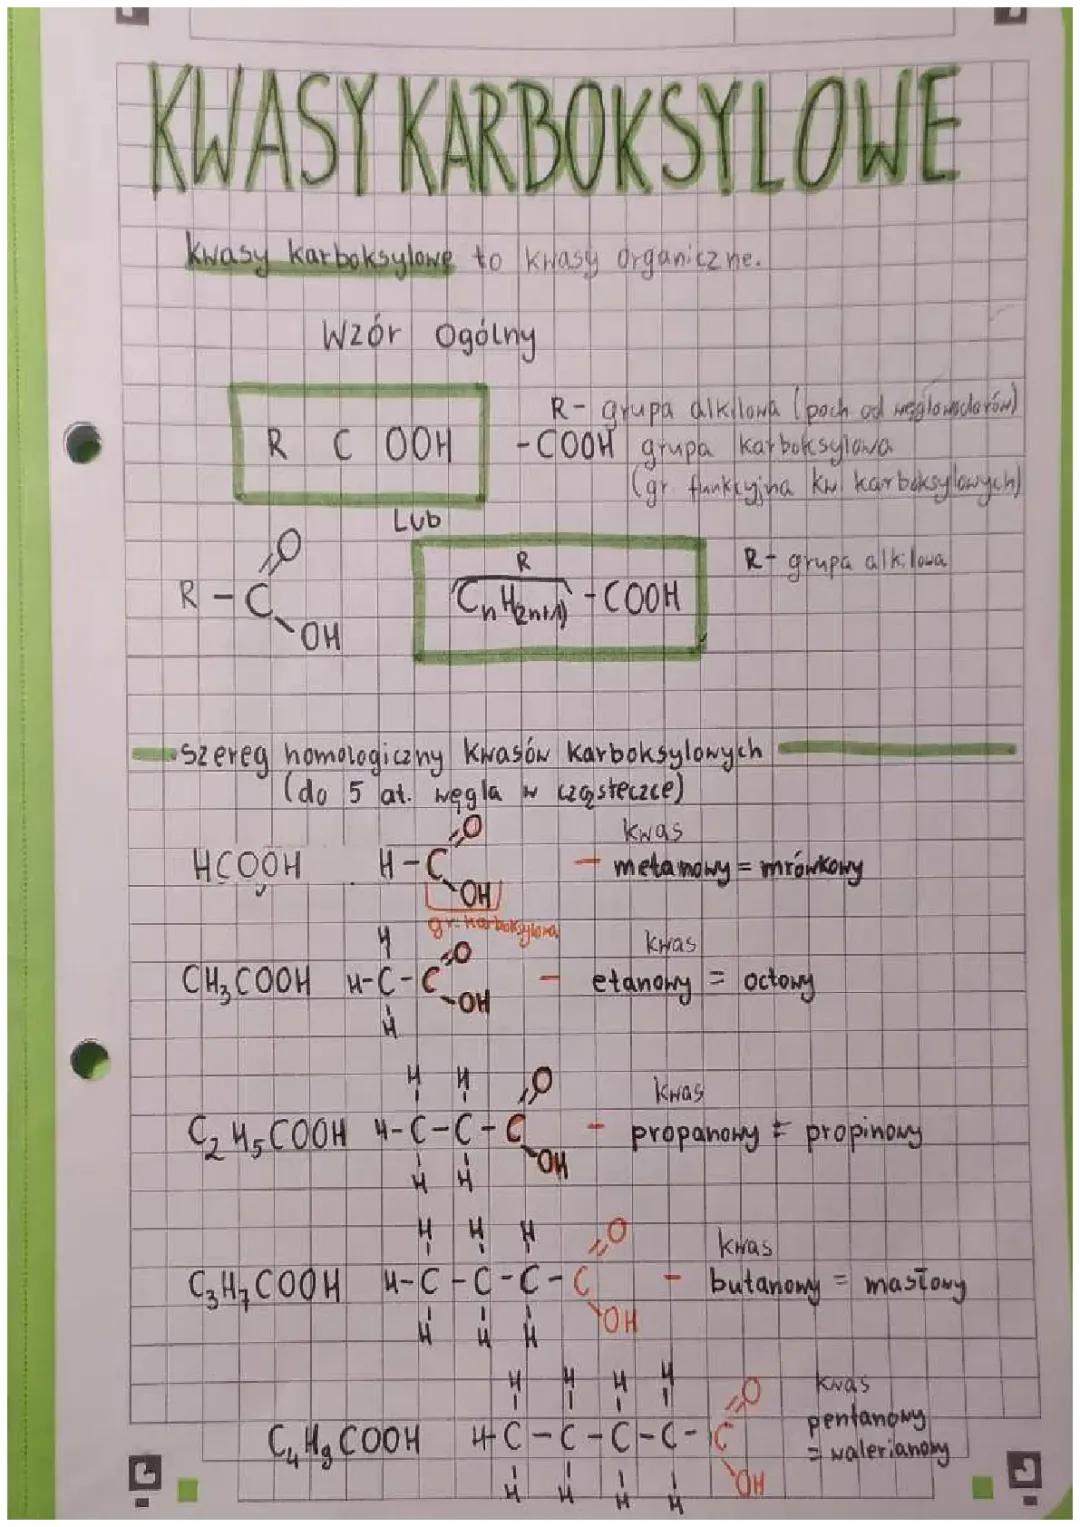 KWASY KARBOKSYLOWE
Kwasy karboksylowe to kwasy organiczne.
Wzór Ogólny
R C OOH
R - grupa alkilowa (poch od węglowodorów)
-COOH grupa karboksylowa
(gr. funkcyjna kw. karboksylowych)
Lub
R - C =O OH
R
CnH(2n+1) - COOH
R - grupa alkilowa
szereg homologiczny kwasów karboksylowych
(do 5 at. węgla w cząsteczce)
kwas
HCOOH H-C =O OH - metanowy = mrówkowy
gr. karboksylowa
H kwas
CH3COOH H-C-C =O OH - etanowy = octowy
H
H H kwas
C2H5COOH H-C-C-C =O OH - propanowy = propinowy
H H
H H H kwas
C3H7COOH H-C-C-C-C =O OH - butanowy = masłowy
H H H
H H H H kwas
C4H9COOH H-C-C-C-C-C =O OH pentanowy
= walerianowy
H H H H